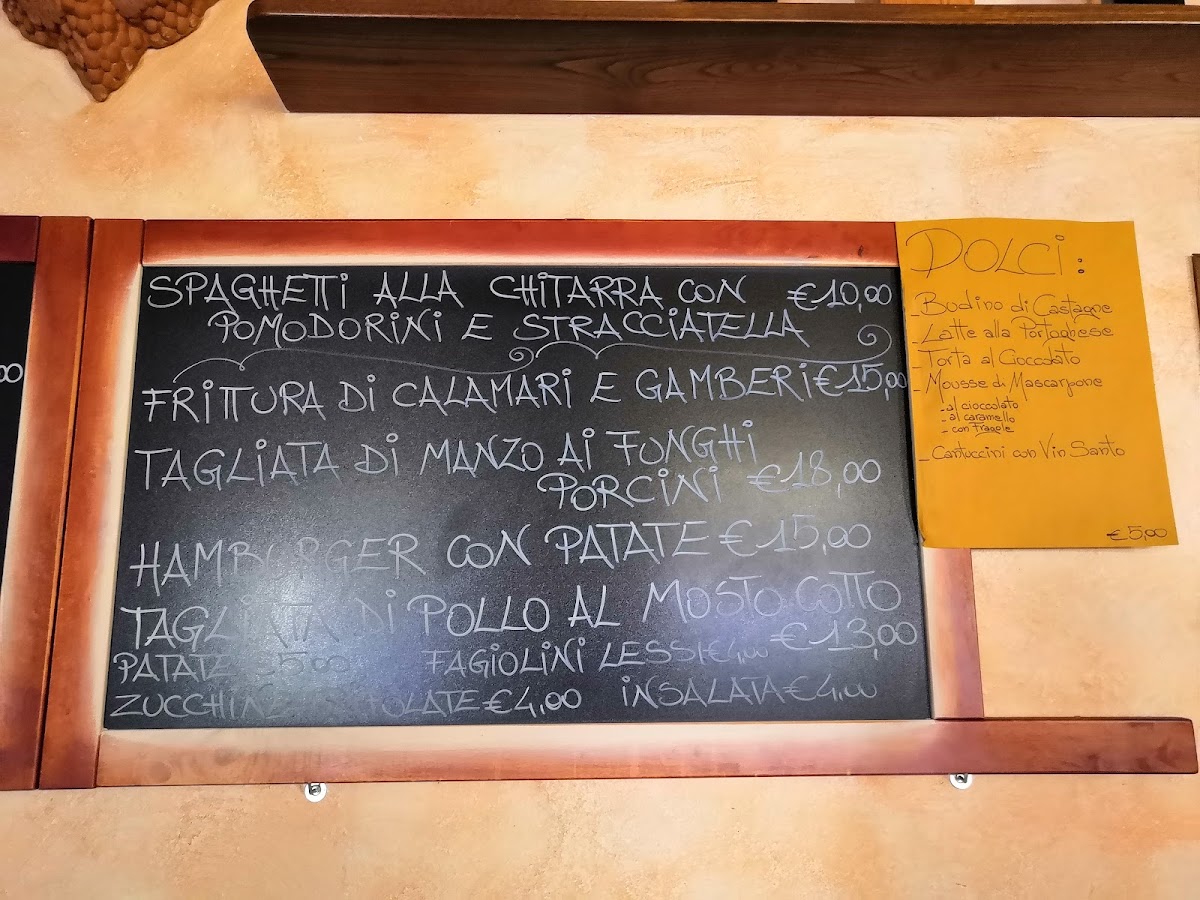 00
SPAGHETTI ALLA CHITARRA CON €10,00
POMODORINI E STRACCIATELLA
FRITTURA DI CALAMARI E GAMBERI €15,00
TAGLIATA DI MANZO AI FUNGHI
PORCINI €18,00
HAMBURGER CON PATATE €15,00
TAGLIATA DI POLLO AL MOSTO COTTO
€13,00
PATATE €5,00 FAGIOLINI LESSI €4,00
ZUCCHINE €4,00 INSALATA €4,00
DOLCI:
- Budino di Castagne
- Latte alla Portoghese
- Torta al Cioccolato
- Mousse di Mascarpone
- al cioccolato
- al caramello
- con Fragole
- Cantuccini con Vin Santo
€5,00